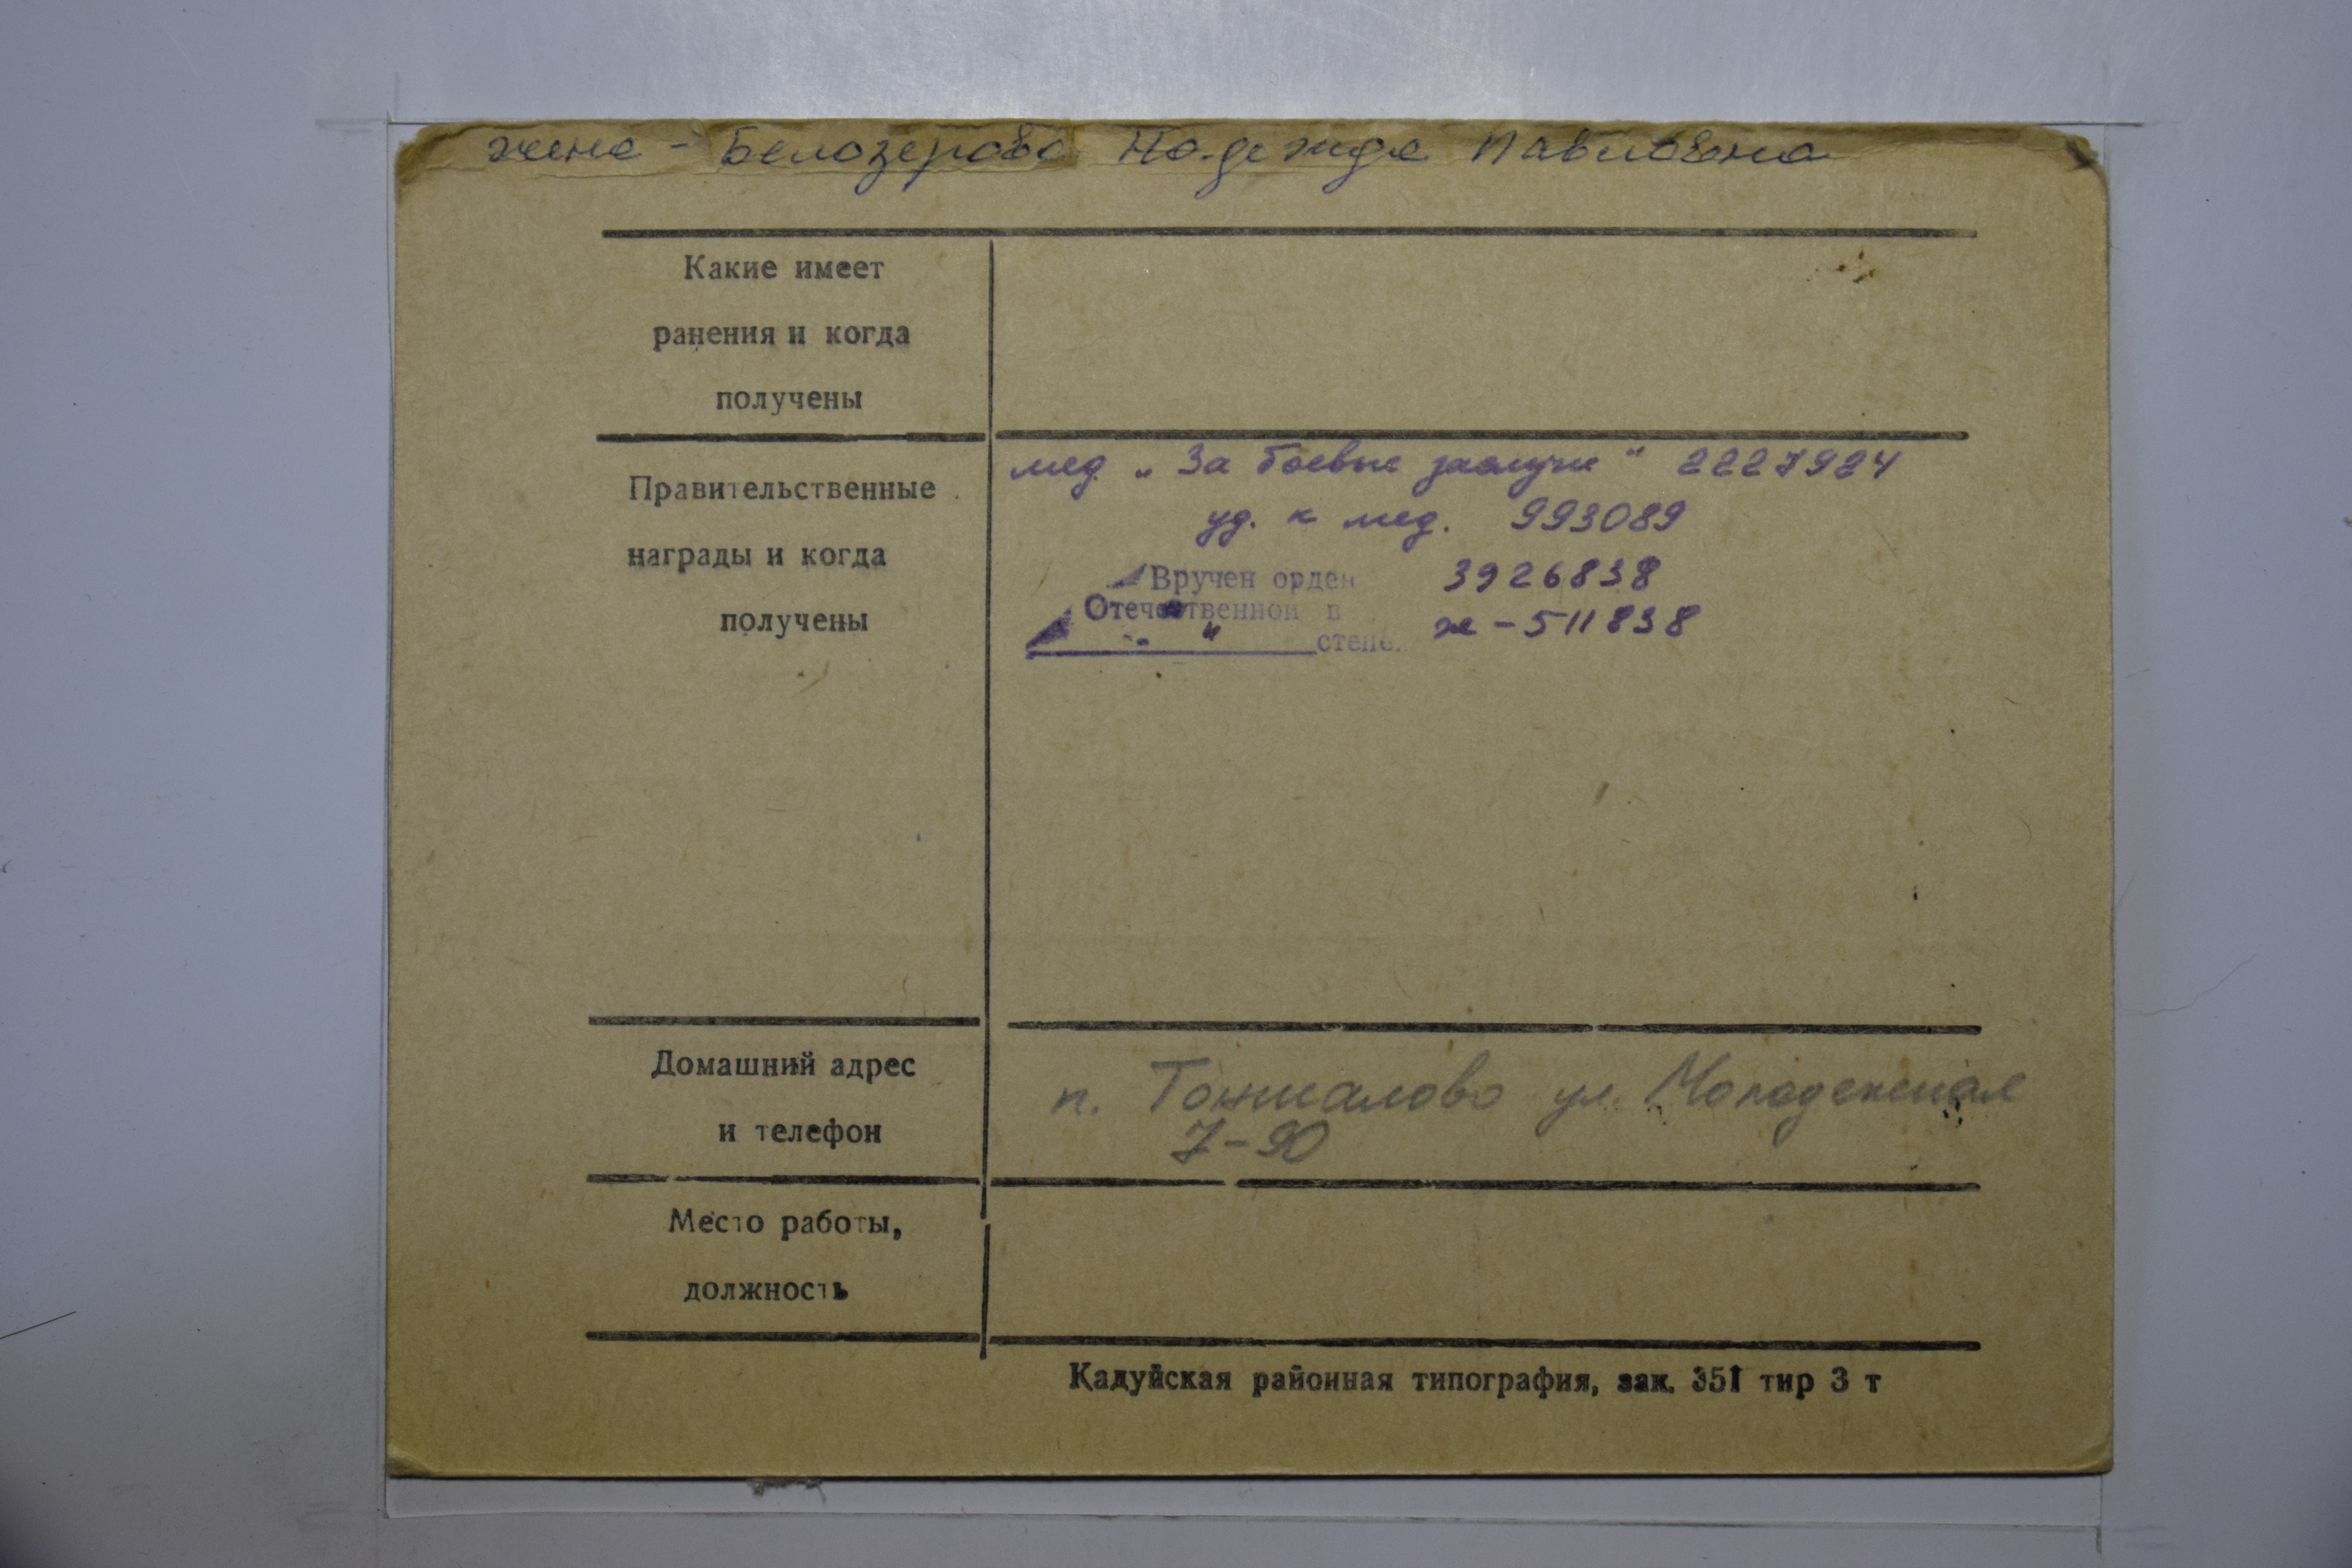 жена - Белозерова Надежда Павловна
Какие имеет
ранения и когда
получены
Правительственные
награды и когда
получены
мед. „За боевые заслуги" 2227924
уд. к мед. 993089
Вручен орден 3926838
Отечественной в
ж - 511838
" степе.
Домашний адрес
и телефон
п. Тоншалово ул. Молодежная
7-90
Место работы,
должность
Кадуйская районная типография, зак. 351 тир 3 т